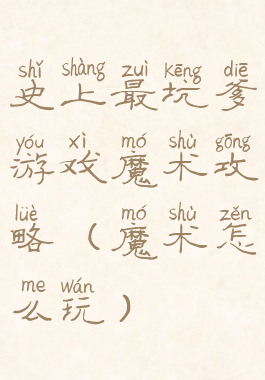 shǐ shàng zuì kēng diē
史上最坑爹
yóu xì mó shù gōng
游戏魔术攻
lüè mó shù zěn
略（魔术怎
me wán
么玩）